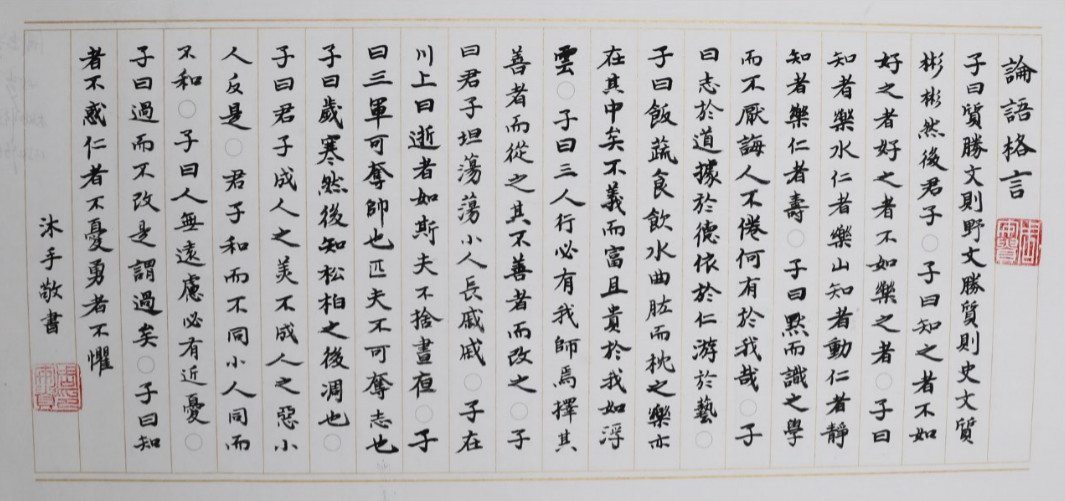 論語格言
子曰質勝文則野文勝質則史文質
彬彬然後君子○子曰知之者不如
好之者好之者不如樂之者○子曰
知者樂水仁者樂山知者動仁者靜
知者樂仁者壽○子曰默而識之學
而不厭誨人不倦何有於我哉○子
曰志於道據於德依於仁游於藝○
子曰飯蔬食飲水曲肱而枕之樂亦
在其中矣不義而富且貴於我如浮
雲○子曰三人行必有我師焉擇其
善者而從之其不善者而改之○子
曰君子坦蕩蕩小人長戚戚○子在
川上曰逝者如斯夫不捨晝夜○子
曰三軍可奪帥也匹夫不可奪志也
子曰歲寒然後知松柏之後凋也○
子曰君子成人之美不成人之惡小
人反是○君子和而不同小人同而
不和○子曰人無遠慮必有近憂○
子曰過而不改是謂過矣○子曰知
者不惑仁者不憂勇者不懼
沐手敬書